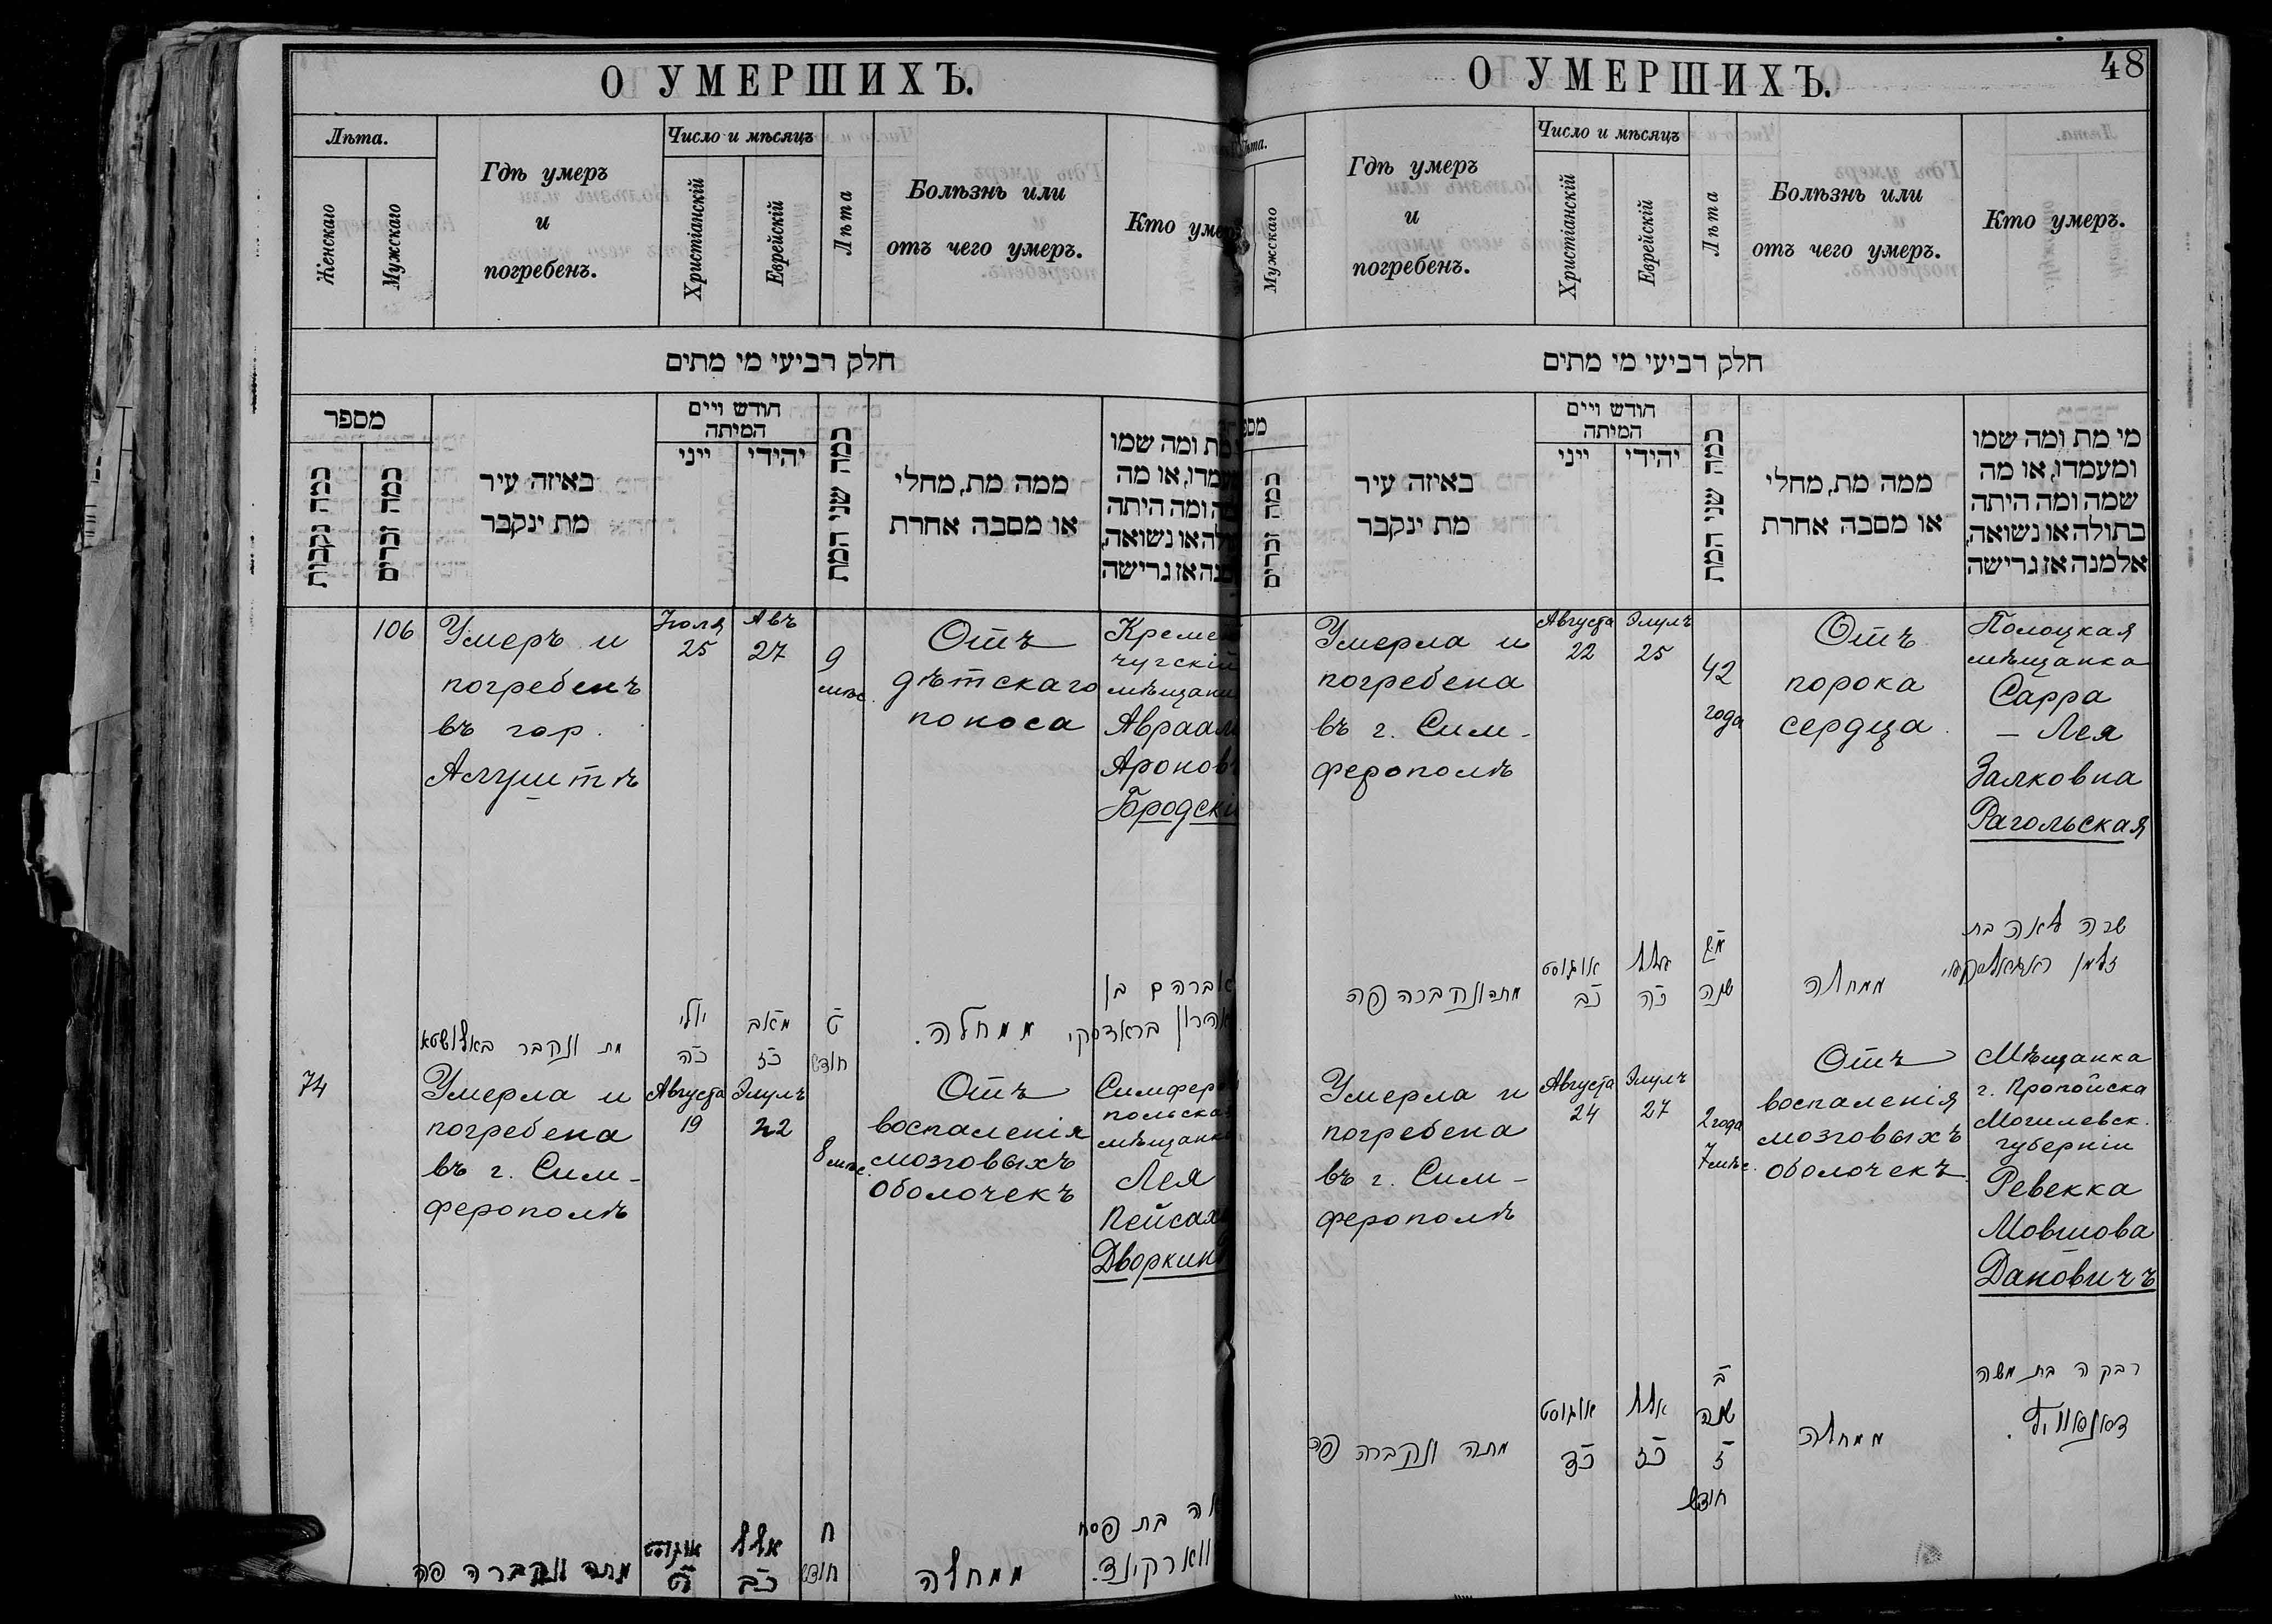 О УМЕРШИХЪ.
Лѣта.
Женскаго
Мужскаго
Гдѣ умеръ
и
погребенъ.
Число и мѣсяцъ
Христіанскій
Еврейскій
Лѣта
Болѣзнь или
отъ чего умеръ.
Кто умеръ
חלק רביעי מי מתים
מספר
כמה נקבות
כמה זכרים
באיזה עיר
מת ינקבר
חודש ויים
המיתה
ייני
יהידי
כמה שני המת
ממה מת, מחלי
או מסבה אחרת
מת ומה שמו
או מה
ומה היתה
או נשואה,
אז גרישה
106
Умеръ и
погребенъ
въ гор.
Алуштѣ
Іюля
25
Авъ
27
9
мѣс.
Отъ
дѣтскаго
поноса
Кремен
чугскій
мѣщани
Авраам
Аронов
Бродскі
מת ונקבר באלושטא
יולי
כה
מאב
כז
ט
חודש
ממחלה.
אברהם בן
אהרון בראדסקי
74
Умерла и
погребена
въ г. Сим-
ферополѣ
Августа
19
Элулъ
22
8 мѣс.
Отъ
воспаленія
мозговыхъ
оболочекъ
Симферо
польская
мѣщанка
Лея
Пейсах
Дворкин
מתה ונקברה פה
אוגוסט
יט
אלול
כב
ח
חודש
ממחלה
בת פסח
О УМЕРШИХЪ.
48
Мужскаго
Гдѣ умеръ
и
погребенъ.
Число и мѣсяцъ
Христіанскій
Еврейскій
Лѣта
Болѣзнь или
отъ чего умеръ.
Кто умеръ.
חלק רביעי מי מתים
כמה זכרים
באיזה עיר
מת ינקבר
חודש ויים
המיתה
ייני
יהידי
כמה שני המת
ממה מת, מחלי
או מסבה אחרת
מי מת ומה שמו
ומעמדו, או מה
שמה ומה היתה
בתולה או נשואה,
אלמנה אז גרישה
Умерла и
погребена
въ г. Сим-
ферополѣ
Августа
22
Элулъ
25
42
года
Отъ
порока
сердца.
Полоцкая
мѣщанка
Сарра
- Лея
Залковна
Рагольская
מתה ונקברה פה
אוגוסט
כב
אלול
כה
מב
שנה
ממחלה
שרה לאה בת
זלמן
Умерла и
погребена
въ г. Сим-
ферополѣ
Августа
24
Элулъ
27
2 года
7 мѣс.
Отъ
воспаленія
мозговыхъ
оболочекъ
Мѣщанка
г. Пропойска
Могилевск.
губерніи
Ревекка
Мовшова
Дановичъ
מתה ונקברה פה
אוגוסט
כד
אלול
כז
ב
שנה
ז
חודש
ממחלה
רבקה בת משה